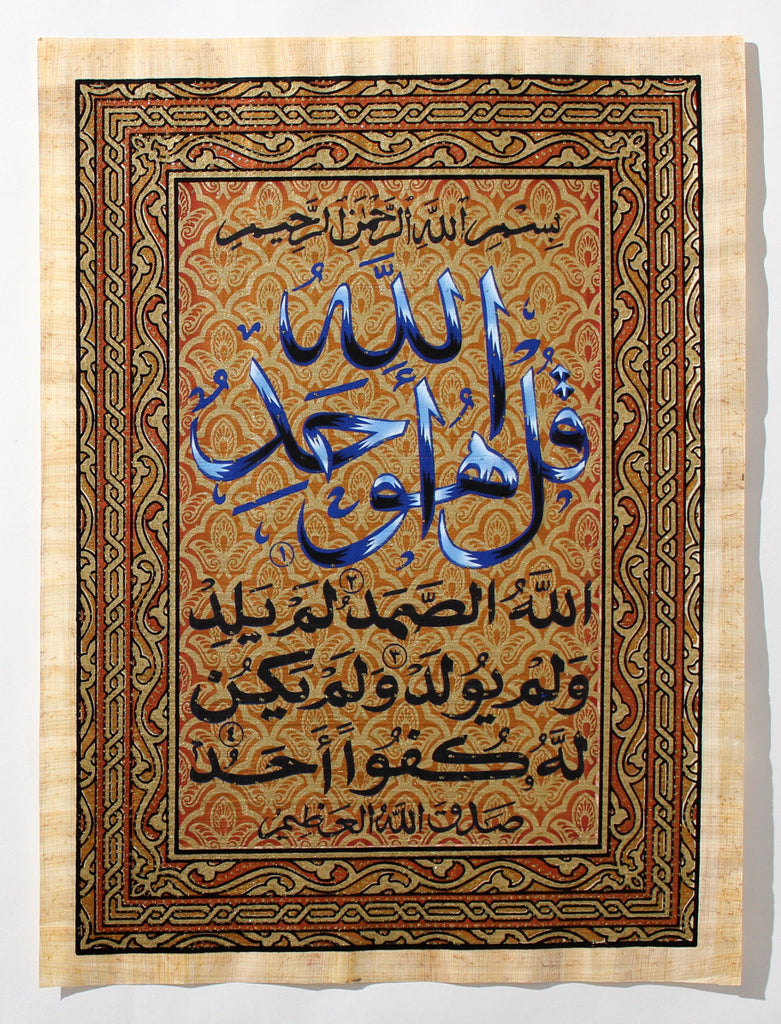 بِسْمِ اللَّهِ الرَّحْمَنِ الرَّحِيمِ
قُلْ هُوَ اللَّهُ أَحَدٌ ١
اللَّهُ الصَّمَدُ ٢ لَمْ يَلِدْ
وَلَمْ يُولَدْ ٣ وَلَمْ يَكُنْ
لَهُ كُفُوًا أَحَدٌ ٤
صَدَقَ اللَّهُ العَظِيمُ